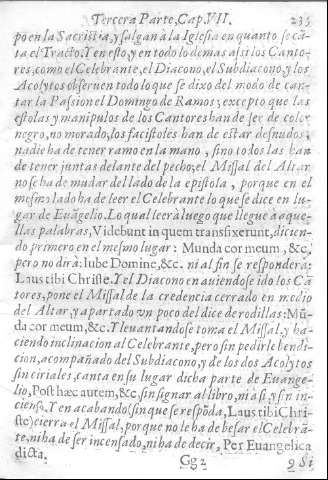 Tercera Parte, Cap. VII. 235
po en la Sacristia, y salgan à la Iglesia en quanto se cã
ta el Tracto. Y en esto, y en todo lo demas assi los Canto-
res, como el Celebrante, el Diacono, el Subdiacono, y los
Acolytos obseruen todo lo que se dixo del modo de can-
tar la Passion el Domingo de Ramos; excepto que las
estolas y manipulos de los Cantores han de ser de color
negro, no morado, los facistoles han de estar desnudos;
nadie ha de tener ramo en la mano, sino todos las han
de tener juntas delante del pecho; el Missal del Altar
no se ha de mudar del lado de la epistola, porque en el
mesmo lado ha de leer el Celebrante lo que se dice en lu-
gar de Euãgelio. Lo qual leerà luego que llegue à aque-
llas palabras, Videbunt in quem transfixerunt, dicien-
do primero en el mesmo lugar: Munda cor meum, &c.
pero no dirà: Iube Domine, &c. ni al fin se responderà:
Laus tibi Christe. Y el Diacono en auiendose ido los Cã
tores, pone el Missal de la credencia cerrado en medio
del Altar, y apartado vn poco del dice de rodillas: Mũ
da cor meum, &c. Y leuantandose toma el Missal, y ha-
ciendo inclinacion al Celebrante, pero sin pedirle bendi-
cion, acompañado del Subdiacono, y de los dos Acolytos
sin ciriales, canta en su lugar dicha parte de Euange-
lio, Post hæc autem, &c. sin signar al libro, ni à si, y sin in-
cienso. Y en acabando (sin que se respõda, Laus tibi Chri-
ste) cierra el Missal, porque no le ha de besar el Celebrã-
te, ni ha de ser incensado, ni ha de decir, Per Euangelica
dicta.
Gg 2 9 Si